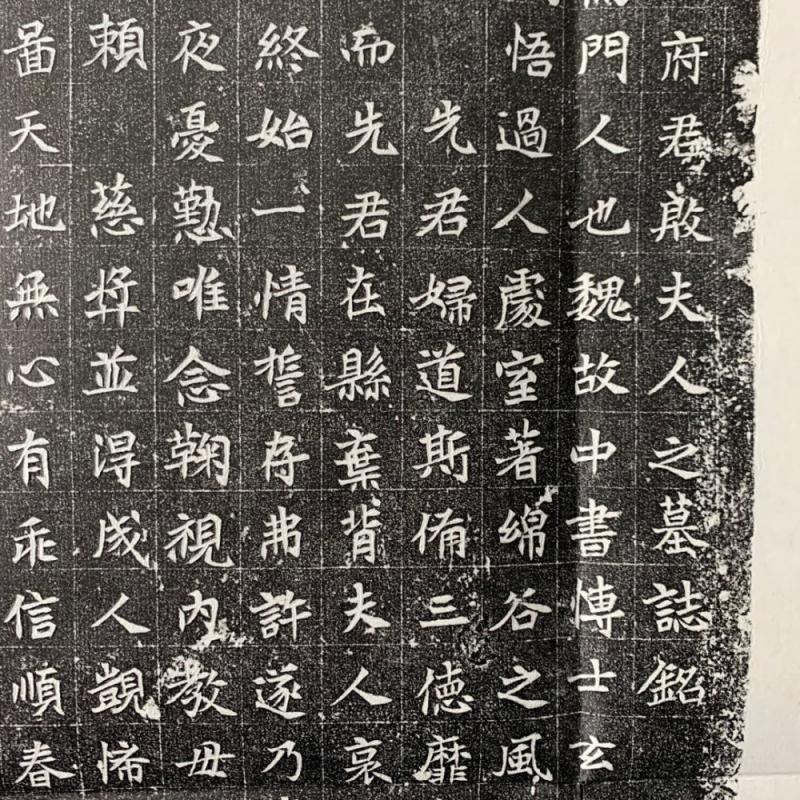 府君啟夫人之墓誌銘
門人也魏故中書愽士玄
悟過人處室著綿谷之風
先君婦道斯俻三徳靡
而先君在縣棄背夫人哀
終始一情誓存弗許遂乃
夜憂懃唯念鞠視內教毋
頼慈奨並得成人覬悕
啚天地無心有乖信順春